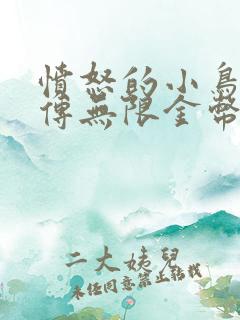 憤怒的小鳥
傳無限金幣
二大姨兒
未經同意禁止轉載